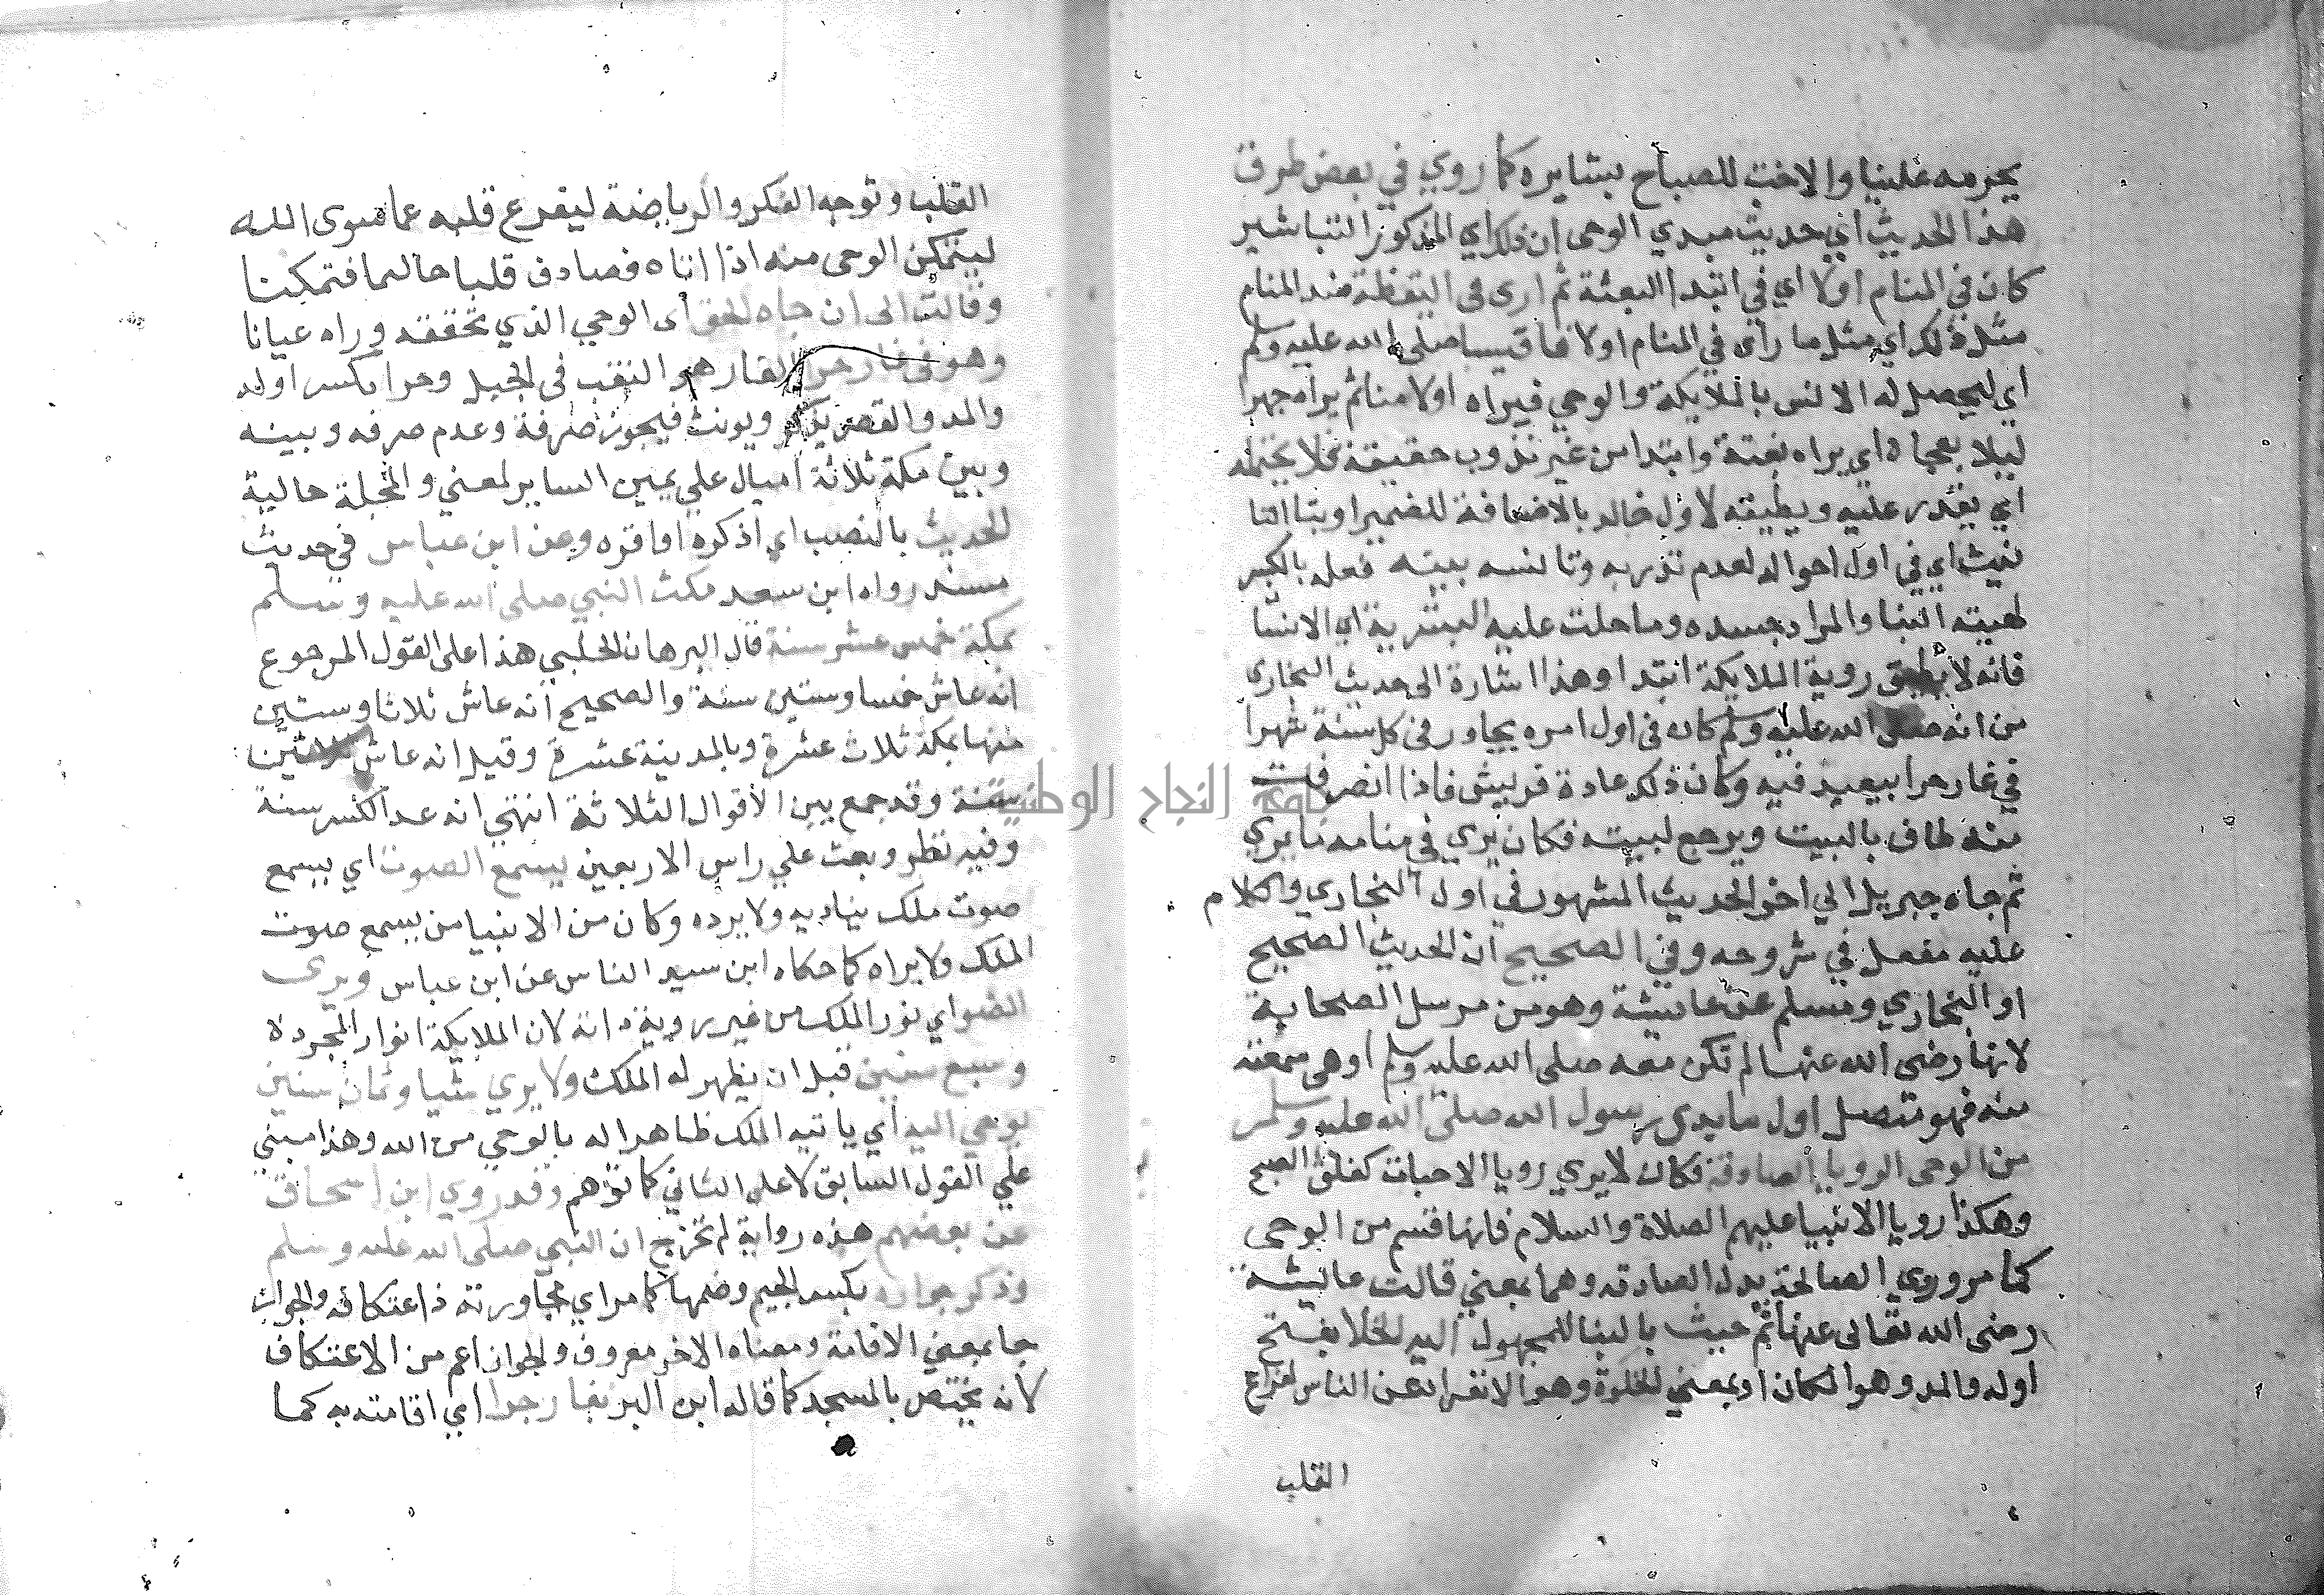 هذا الحديث اي حديث مبدي الوحى ان ذلك اي المذكور التباشير
كان في المنام اولا اي في ابتدا البعثة ثم ارى فى اليقظة ضد المنام
مثل ذلك اي مثل ما راى في المنام اولا صلى الله عليه وسلم
اي ليحصل له الانس بالملايكة والوحي فيراه اولا مناما ثم يراه جهرا
ليلا يفجاه اي يراه بغتة وابتدا من غير حقيقة فلا يحتمله
اي يقدر عليه ويطيقه لاول حاله بالاضافة للضمير او بتا التا
نيث اي في اول احواله لعدم تدربه وتانسه ببينه
البنا والمراد جسده وما حلت عليه البشرية اي الانسا
فانه لا يطيق روية الملايكة ابتدا وهذا اشارة الى حديث البخاري
من انه صلى الله عليه وسلم كان فى اول امره يجاور فى كل سنة شهرا
في غار حرا فيه وكان ذلك عادة قريش فاذا انصرفت
منه طاف بالبيت ويرجع لبيته فكان يري في منامه ما يري
ثم جاه جبريل الي اخر الحديث المشهور في اول البخاري والكلام
عليه مفصل في شروحه وفي الصحيح اى الحديث الصحيح
او البخاري ومسلم عن عايشة وهو من مرسل الصحابة
لانها رضى الله عنها لم تكن معه صلى الله عليه وسلم او هى سمعته
منه فهو متصل اول ما بدى رسول الله صلى الله عليه وسلم
من الوحى الرويا الصادقة فكان لا يري رويا الا جات كفلق الصبح
وهكذا رويا الانبيا عليهم الصلاة والسلام فانها قسم من الوحى
كما مر وروي الصالحة بدل الصادقه وهما بمعني قالت عايشة
رضى الله تعالى عنها ثم حبب بالبنا للمجهول اليه الخلا بفتح
اوله والمد وهو المكان او بمعني الخلوة وهو الانفراد عن الناس لفراغ
القلب
القلب وتوجه الفكر والرياضة ليفرغ قلبه عما سوى الله
ليتمكن الوحى منه اذا اتاه فصادف قلبا خاليا فتمكنا
وقالت الى ان جاه الحق اى الوحي الذي تحققه وراه عيانا
وهو فى غار حرا الغار هو النقب فى الجبل وحرا بكسر اوله
والمد والقصر يذكر ويونث فيجوز صرفه وعدم صرفه وبينه
وبين مكة ثلاثة اميال علي يمين الساير لمني والجملة حالية
الحديث بالنصب اي اذكره او اقره وعن ابن عباس في حديث
مسند رواه ابن سعد مكث النبي صلى الله عليه وسلم
بمكة خمس عشر سنة قال البرهان الحلبي هذا على القول المرجوح
انه عاش خمسا وستين سنة والصحيح انه عاش ثلاثا وستين
منها بمكة ثلاث عشرة وبالمدينة عشرة وقيل انه عاش ستين
سنة وقد جمع بين الاقوال الثلاثة انتهي انه عد الكسر سنة
وفيه نظر وبعث علي راس الاربعين يسمع الصوت اي يسمع
صوت ملك يناديه ولا يرده وكان من الانبيا من يسمع صوت
الملك ولا يراه كما حكاه ابن سيد الناس عن ابن عباس ويرى
الضو اي نور الملك من غير روية ذاته لان الملايكة انوار المجردة
وسبع سنين قبل ان يظهر له الملك ولا يري شيا وثمان سنين
يوحي اليه اي ياتيه الملك ظاهرا له بالوحي من الله وهذا مبني
علي القول السابق لا على الثاني كما توهم وقد روي ابن اسحاق
عن بعضهم هذه رواية لم تخرج ان النبي صلى الله عليه وسلم
وذكر جواره بكسر الجيم وضمها كما مر اي مجاورته اعتكافه والجوار
جا بمعني الاقامة ومعناه الاخر معروف والجوار اعم من الاعتكاف
لانه يختص بالمسجد كما قاله ابن البر بغار حرا اي اقامته به كما
جامعة النجاح الوطنية